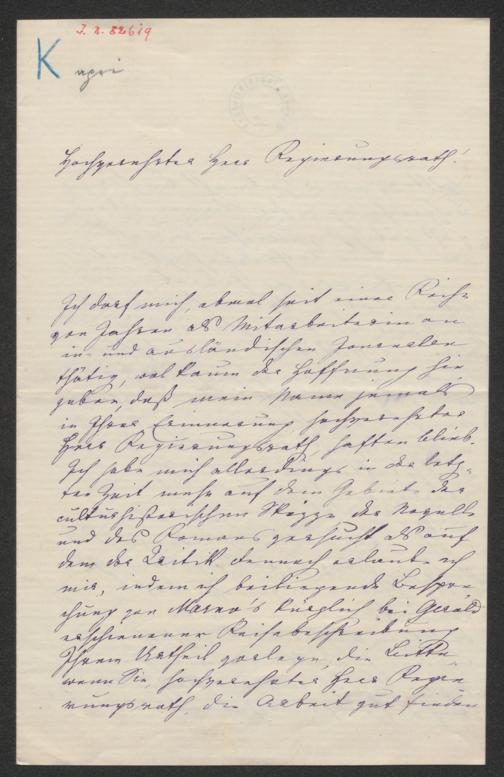 J. N. 82619
K
apri
Hochverehrter Herr Regierungsrath!
Ich darf mich, obwol seit einer Reihe
von Jahren als Mitarbeiterin an
in- und ausländischen Journalen
thätig, wol kaum der Hoffnung hin
geben, daß mein Name jemals
in Ihrer Erinnerung hochverehrter
Herr Regierungsrath, haften blieb.
Ich habe mich allerdings in der letz-
ten Zeit mehr auf dem Gebiete der
culturhistorischen Skizze, der Novelle
und des Romans versucht als auf
dem der Kritik, dennoch erlaube ich
mir, indem ich beiliegende Bespre-
chung von Marno's kürzlich bei Gerold
erschienener Reisebeschreibung
Ihrem Urtheil vorlege, die Bitte
wenn Sie, hochverehrter Herr Regie
rungsrath, die Arbeit gut finden